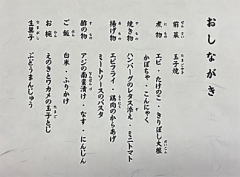 おしながき
前菜 玉子焼
煮物 エビ・たけのこ・きりぼし大根
かぼちゃ・こんにゃく
焼き物 ハンバーグのレタス添え・ミニトマト
揚げもの エビフライ・鶏肉のからあげ
ミートソースのパスタ
酢の物 アジの南蛮漬け・なす・にんじん
ご飯 白米・ふりかけ
お椀 えのきとワカメの玉子とじ
生菓子 ぶどうまんじゅう